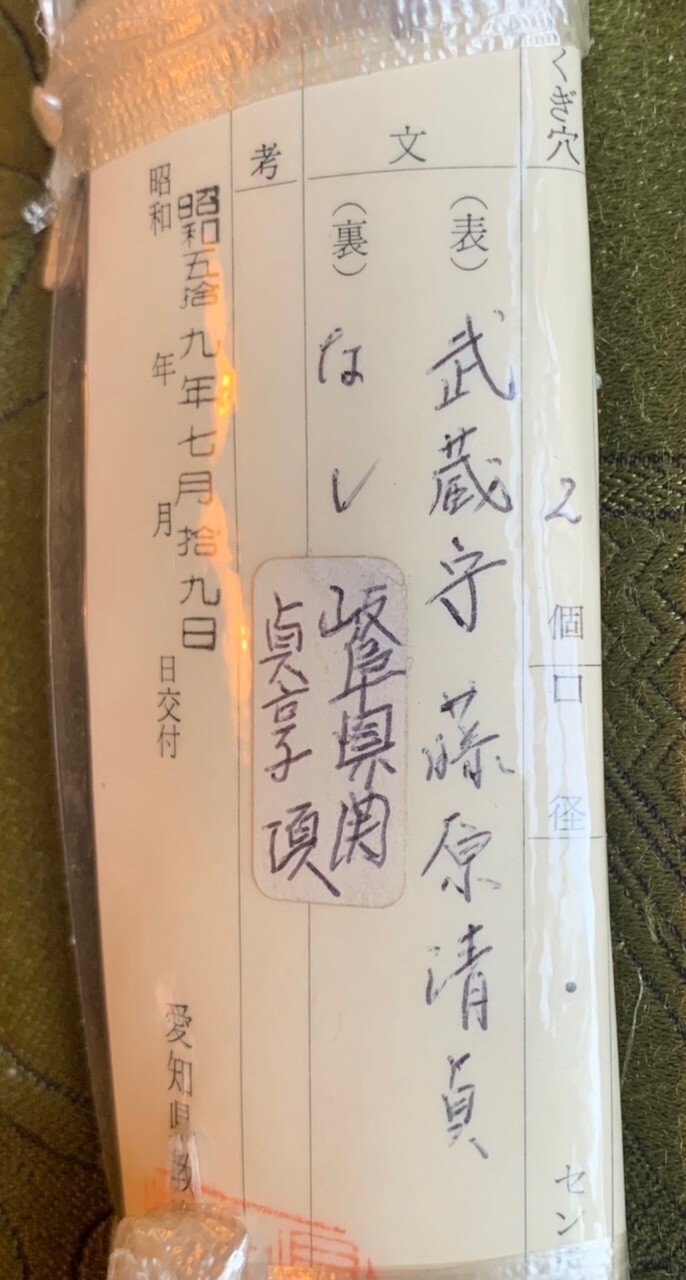 くぎ穴 2 個
口径 . セン
文
(表) 武蔵守藤原清貞
(裏) なし
考
岐阜県関
貞享頃
昭和五拾九年七月拾九日
昭和 年 月 日交付
愛知県教